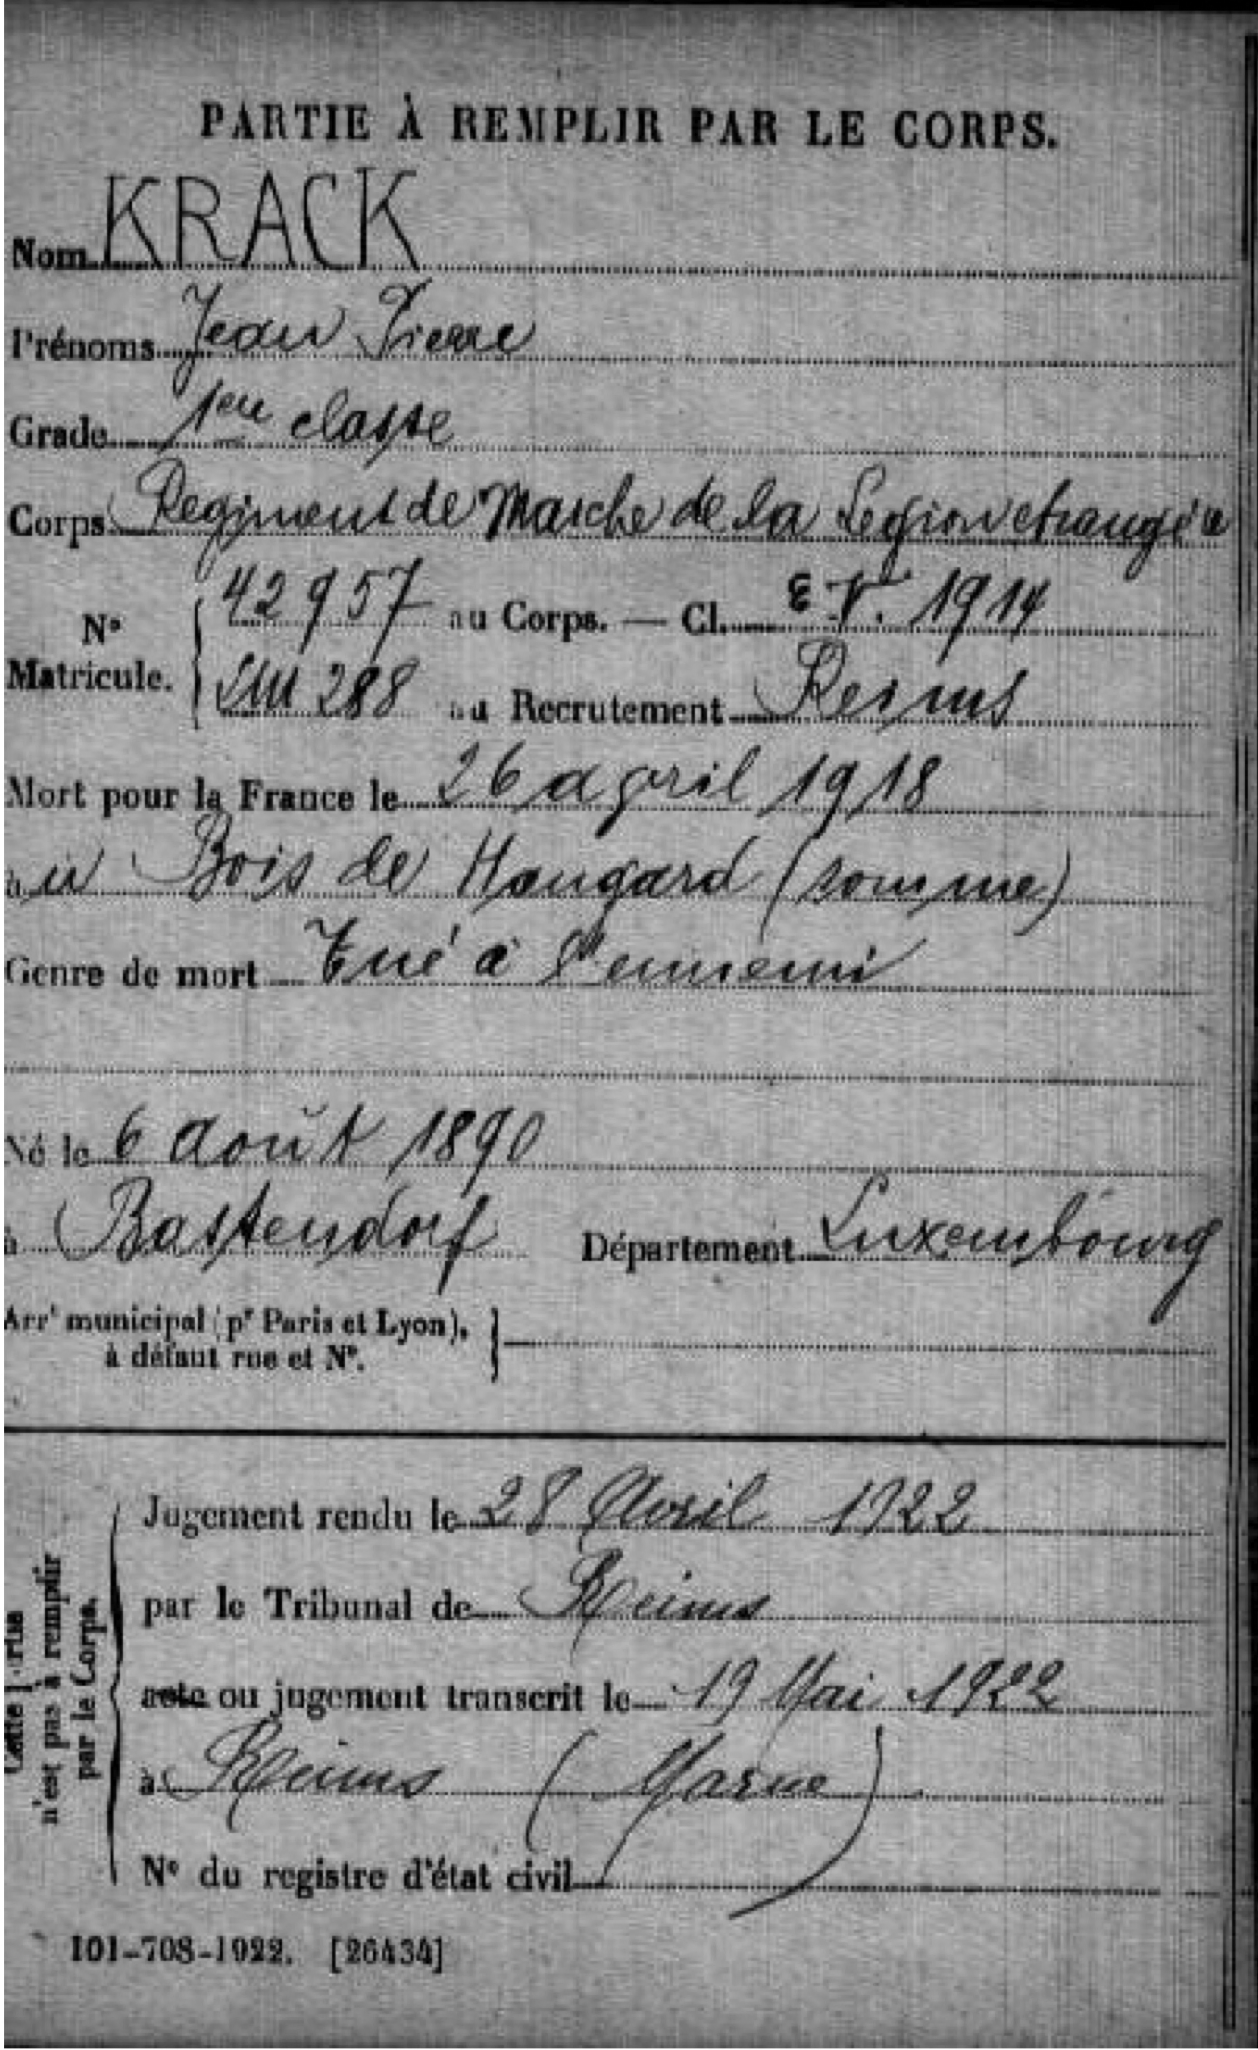 PARTIE À REMPLIR PAR LE CORPS.
Nom KRACK
Prénoms Jean Pierre
Grade 1ere classe
Corps Regiment de Marche de la Legion etrangère
N° Matricule. 42957 au Corps. — Cl. E.V. 1914
288 au Recrutement Reims
Mort pour la France le 26 april 1918
au Bois de Hangard (Somme)
Genre de mort Tué à l'ennemi
Né le 6 Août 1890
à Bastendorf Département Luxembourg
Arrt municipal (pr Paris et Lyon),
à défaut rue et N°.
Cette partie
n'est pas à remplir
par le Corps.
Jugement rendu le 28 Avril 1922
par le Tribunal de Reims
acte ou jugement transcrit le 19 Mai 1922
à Reims (Marne)
N° du registre d'état civil
101-708-1922. [26434]